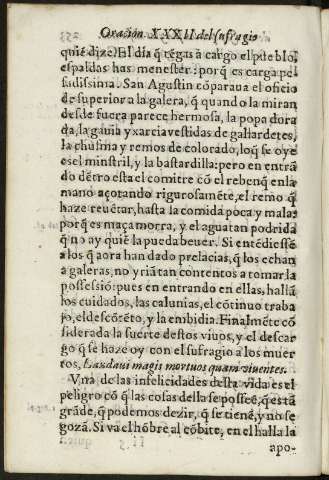 Oracion XXXII del sufragio
quiē dize: El dia q̄ tēgas a cargo el pueblo,
espaldas has menester: porq̄ es carga pe-
sadissima. San Agustin cōparaua el oficio
de superior a la galera, q̄ quando la miran
desde fuera parece hermosa, la popa dora
da, la gauia y xarcia vestidas de gallardetes,
la chusma y remos de colorado, lo q̄ se oye
es el minstril, y la bastardilla: pero en entrā
do dētro esta el comitre cō el rebenq̄ en la
mano açotando rigurosamēte, el remo q̄
haze reuētar, hasta la comida poca y mala:
porq̄ es maçamorra, y el agua tan podrida
q̄ no ay quiē la pueda beuer. Si entēdiessē
a los q̄ aora han dado prelacias, q̄ los echan
a galeras, no yriā tan contentos a tomar la
possessiō: pues en entrando en ellas, hallā
los cuidados, las calunias, el cōtinuo traba
jo, el descōtēto, y la enibidia. Finalmēte cō
siderada la suerte destos viuos, y el descar
go q̄ se haze oy con el sufragio a los muer
tos, Laudaui magis mortuos quam viuentes.
Vna de las infelicidades desta vida es el
peligro cō q̄ las cosas della se posseē, q̄ es tā
grāde, q̄ podemos dezir, q̄ se tienē, y no se
gozā. Si va el hōbre al cōbite, en el halla la
apo-